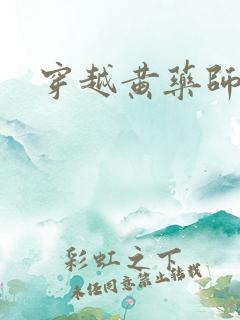 穿越黄藥師
彩虹之下
未经同意禁止转载